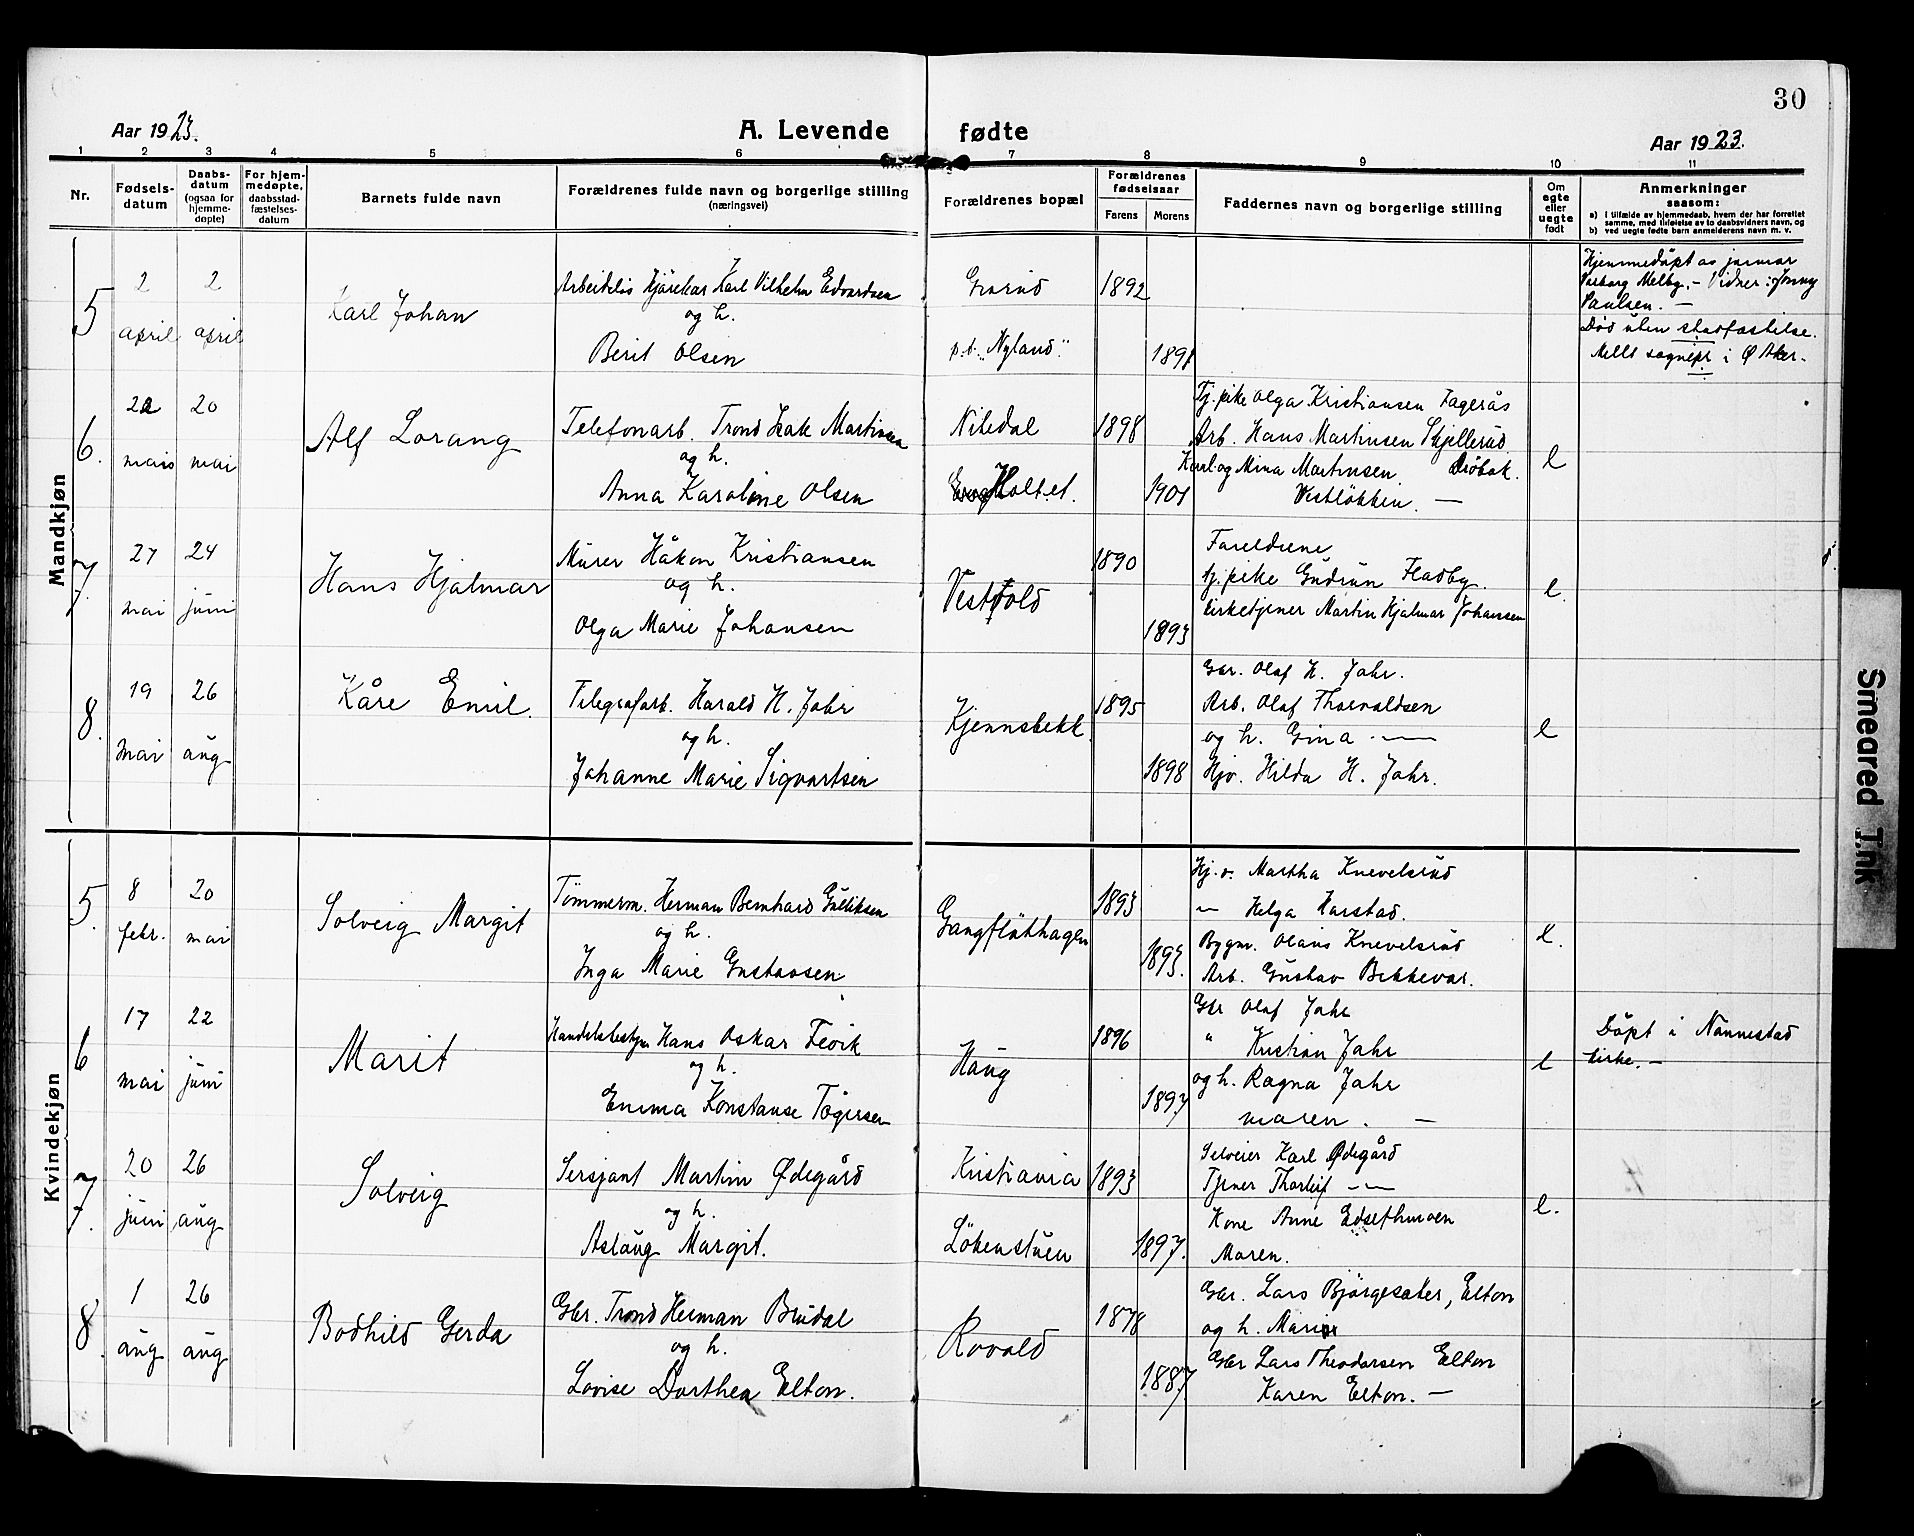 30
Aar 1923.
A. Levende fødte
Aar 1923.
1 2 3 4 5 6 7 8 9 10 11
Nr.
Fødsels-
datum
Daabs-
datum
(ogsaa for
hjemme-
døpte)
For hjem-
medøpte,
daabsstad-
fæstelses-
datum
Barnets fulde navn
Forældrenes fulde navn og borgerlige stilling
(næringsvei)
Forældrenes bopæl
Forældrenes
fødselsaar
Farens Morens
Faddernes navn og borgerlige stilling
Om
egte
eller
uegte
født
Anmerkninger
saasom:
a) i tilfælde av hjemmedaab, hvem der har forrettet
samme, med tilføielse av to daabsvidners navn, og
b) ved uegte fødte barn anmelderens navn m. v.
Mandkjøn
5
2 april
2 april
Karl Johan
Arbeidsløs Karl Vilhelm Edvardsen
og h.
Berit Olsen
Grorud
p.t. "Nyland".
1892
1891
Hjemmedöpt av jormor
Melby. - Vidner: Jonny
Paulsen. —
Död uten stadfæstelse.
i Ø Aker.
6.
20 mai
20 mai
Alf Lorang
Telefonarb. Trond Martinsen
og h.
Anna Karoline Olsen
Nitedal
Holtet.
1898
1901
Tj. pike Olga Kristiansen Fagerås
Arb. Hans Martinsen Skjellerud
Karl og Mina Martinsen Dröbak.
Vestlökken. —
e
7.
27 mai
24 juni
Hans Hjalmar
Murer Håkon Kristiansen
og h.
Olga Marie Johansen
Vestvold
1890
1893
Foreldrene
tj. pike Gudrun Fladby.
kirketjener Martin Hjalmar Johansen
e.
8.
19 mai
26 aug
Kåre Emil.
Telegrafarb. Harald H. Jahr
og h.
Johanne Marie Sigvartsen
Kjennsbekk
1895
1898
Gbr. Olaf H. Jahr.
Arb. Olaf Thorvaldsen
og h. Gina —
Hjv. Hilda H. Jahr.
e
Kvindekjøn
5.
8 febr.
20 mai
Solveig Margit
Tömmerm. Herman Bernhard Gulliksen
og h.
Inga Marie Gustavsen
Gangflöthagen
1893
1893.
Hj. v. Martha Knevelsrud
— Helga Harstad.
Bygm. Olaus Knevelsrud
Arb. Gustav Bekkevar.
e.
6
17 mai
22 juni
Marit
Handelsbestyr Hans Oskar Fevik
og h.
Emma Konstanse Tögersen
Haug
1896
1897
Gbr Olaf Jahr
" Kristian Jahr
og h. Ragna Jahr
Maren. —
e
Döpt i Nannestad
kirke. —
7.
20 juni
26 aug
Solveig
Sersjant Martin Ødegård
og h.
Aslaug Margit.
Kristiania
Lökenstuen
1893
1897.
Selveier Karl Ødegård
Tjener Thorleif — —
Kone Anne Edsethmoen
Maren.
e.
8.
1 aug
26 aug
Bodhild Gerda
Gbr. Trond Herman Brudal
og h.
Lovise Dorthea Elton.
Rovold
1878
1887
Gbr. Lars Bjørgesæter, Elton
og h. Marie
Gbr Lars Theodorsen Elton
Karen Elton. —
Smeared Ink